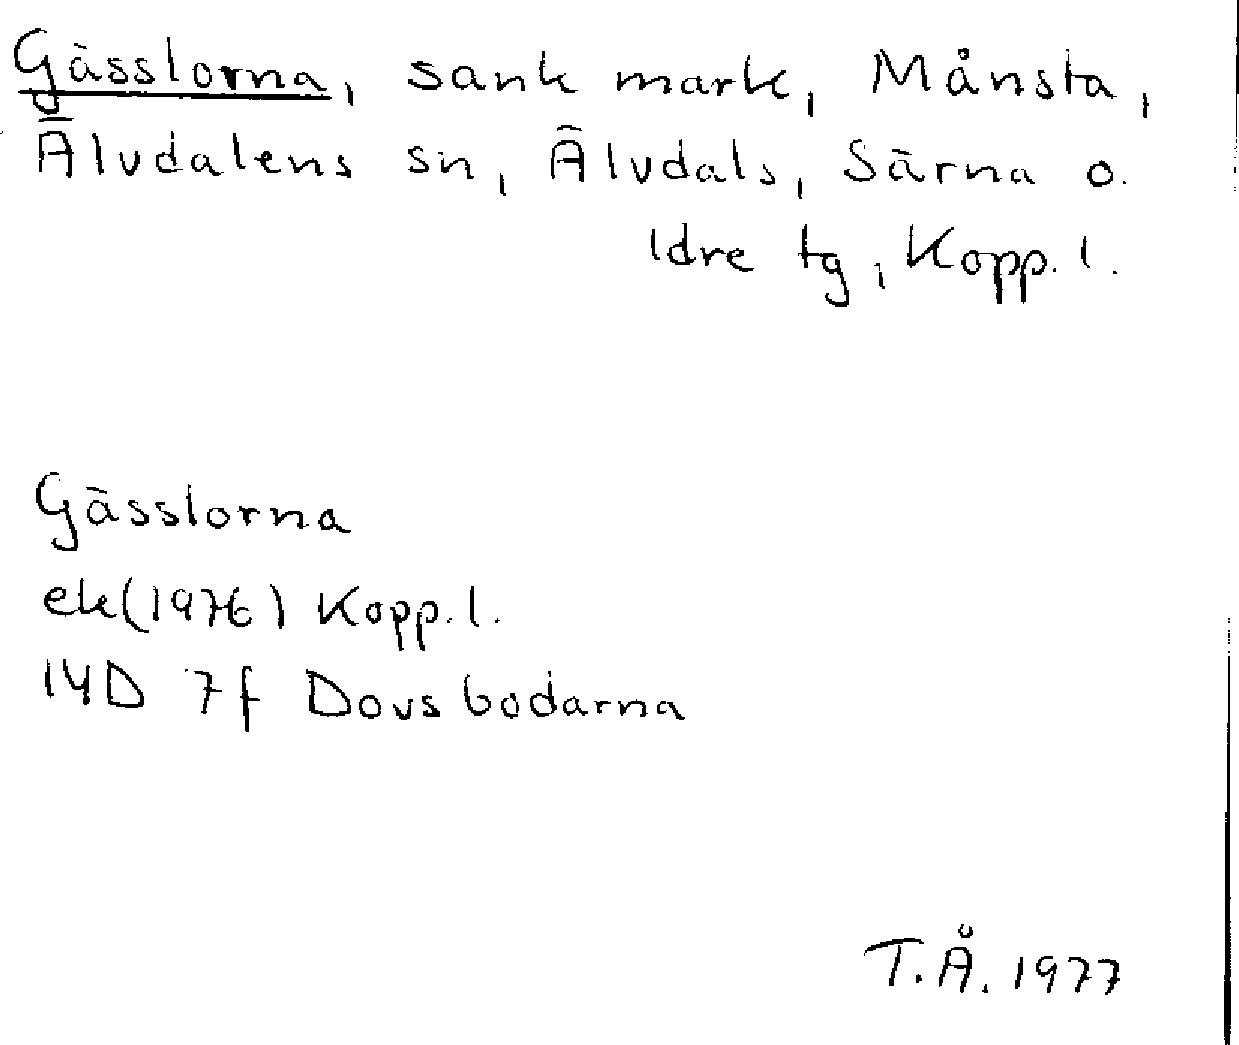 Gässlorna, sank mark, Månsta,
Älvdalens sn, Älvdals, Särna o.
Idre tg, Kopp. l.
Gässlorna
ek(1976) Kopp. l.
14D 7f Dovsbodarna
T.Å. 1977